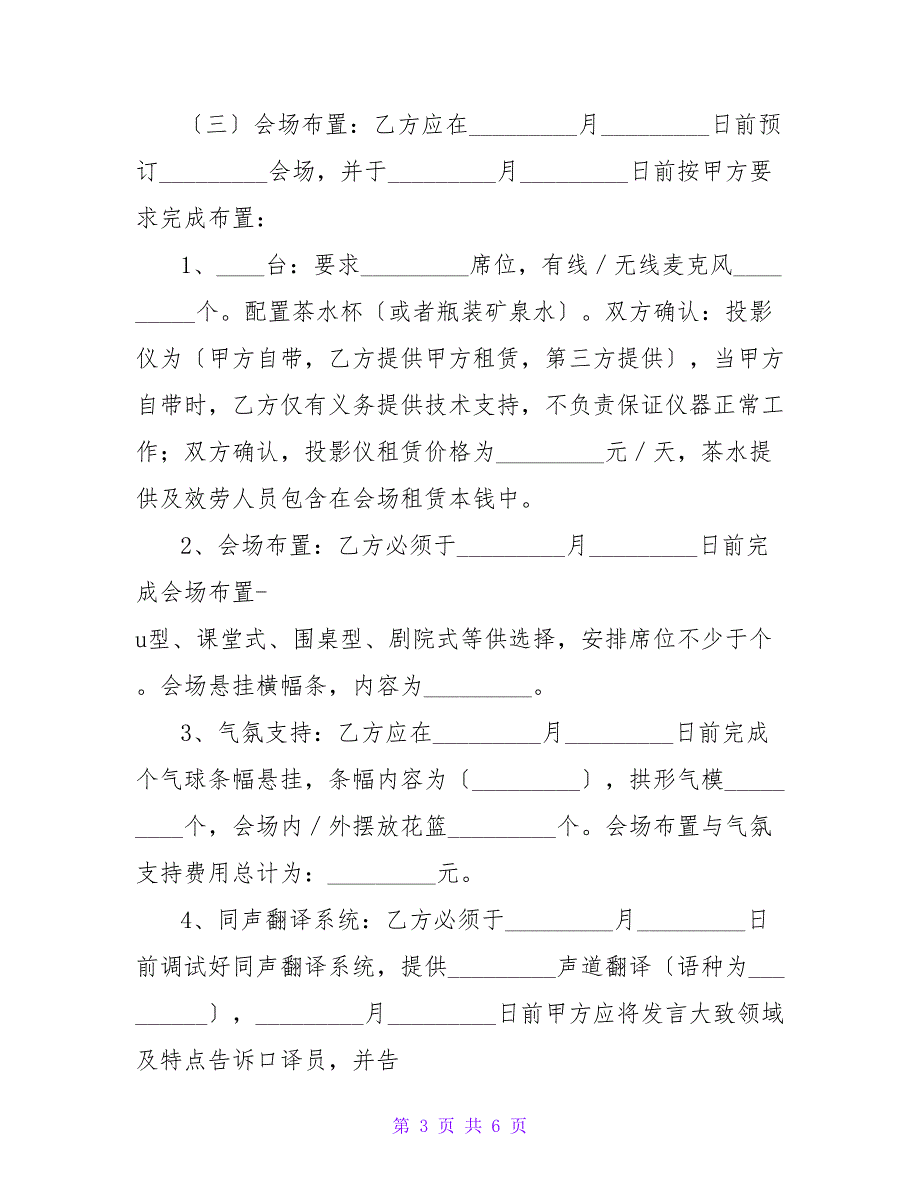 〔三〕会场布置：乙方应在_________月_________日前预
订_________会场，并于_________月_________日前按甲方要
求完成布置：
1、____台：要求_________席位，有线／无线麦克风____
_____个。配置茶水杯〔或者瓶装矿泉水〕。双方确认：投影
仪为〔甲方自带，乙方提供甲方租赁，第三方提供〕，当甲方
自带时，乙方仅有义务提供技术支持，不负责保证仪器正常工
作；双方确认，投影仪租赁价格为_________元／天，茶水提
供及效劳人员包含在会场租赁本钱中。
2、会场布置：乙方必须于_________月_________日前完
成会场布置-
u型、课堂式、围桌型、剧院式等供选择，安排席位不少于个
。会场悬挂横幅条，内容为_________。
3、气氛支持：乙方应在_________月_________日前完成
个气球条幅悬挂，条幅内容为〔_________〕，拱形气模_____
____个，会场内／外摆放花篮_________个。会场布置与气氛
支持费用总计为：_________元。
4、同声翻译系统：乙方必须于_________月_________日
前调试好同声翻译系统，提供_________声道翻译〔语种为___
______〕，_________月_________日前甲方应将发言大致领域
及特点告诉口译员，并告
第 3 页 共 6 页